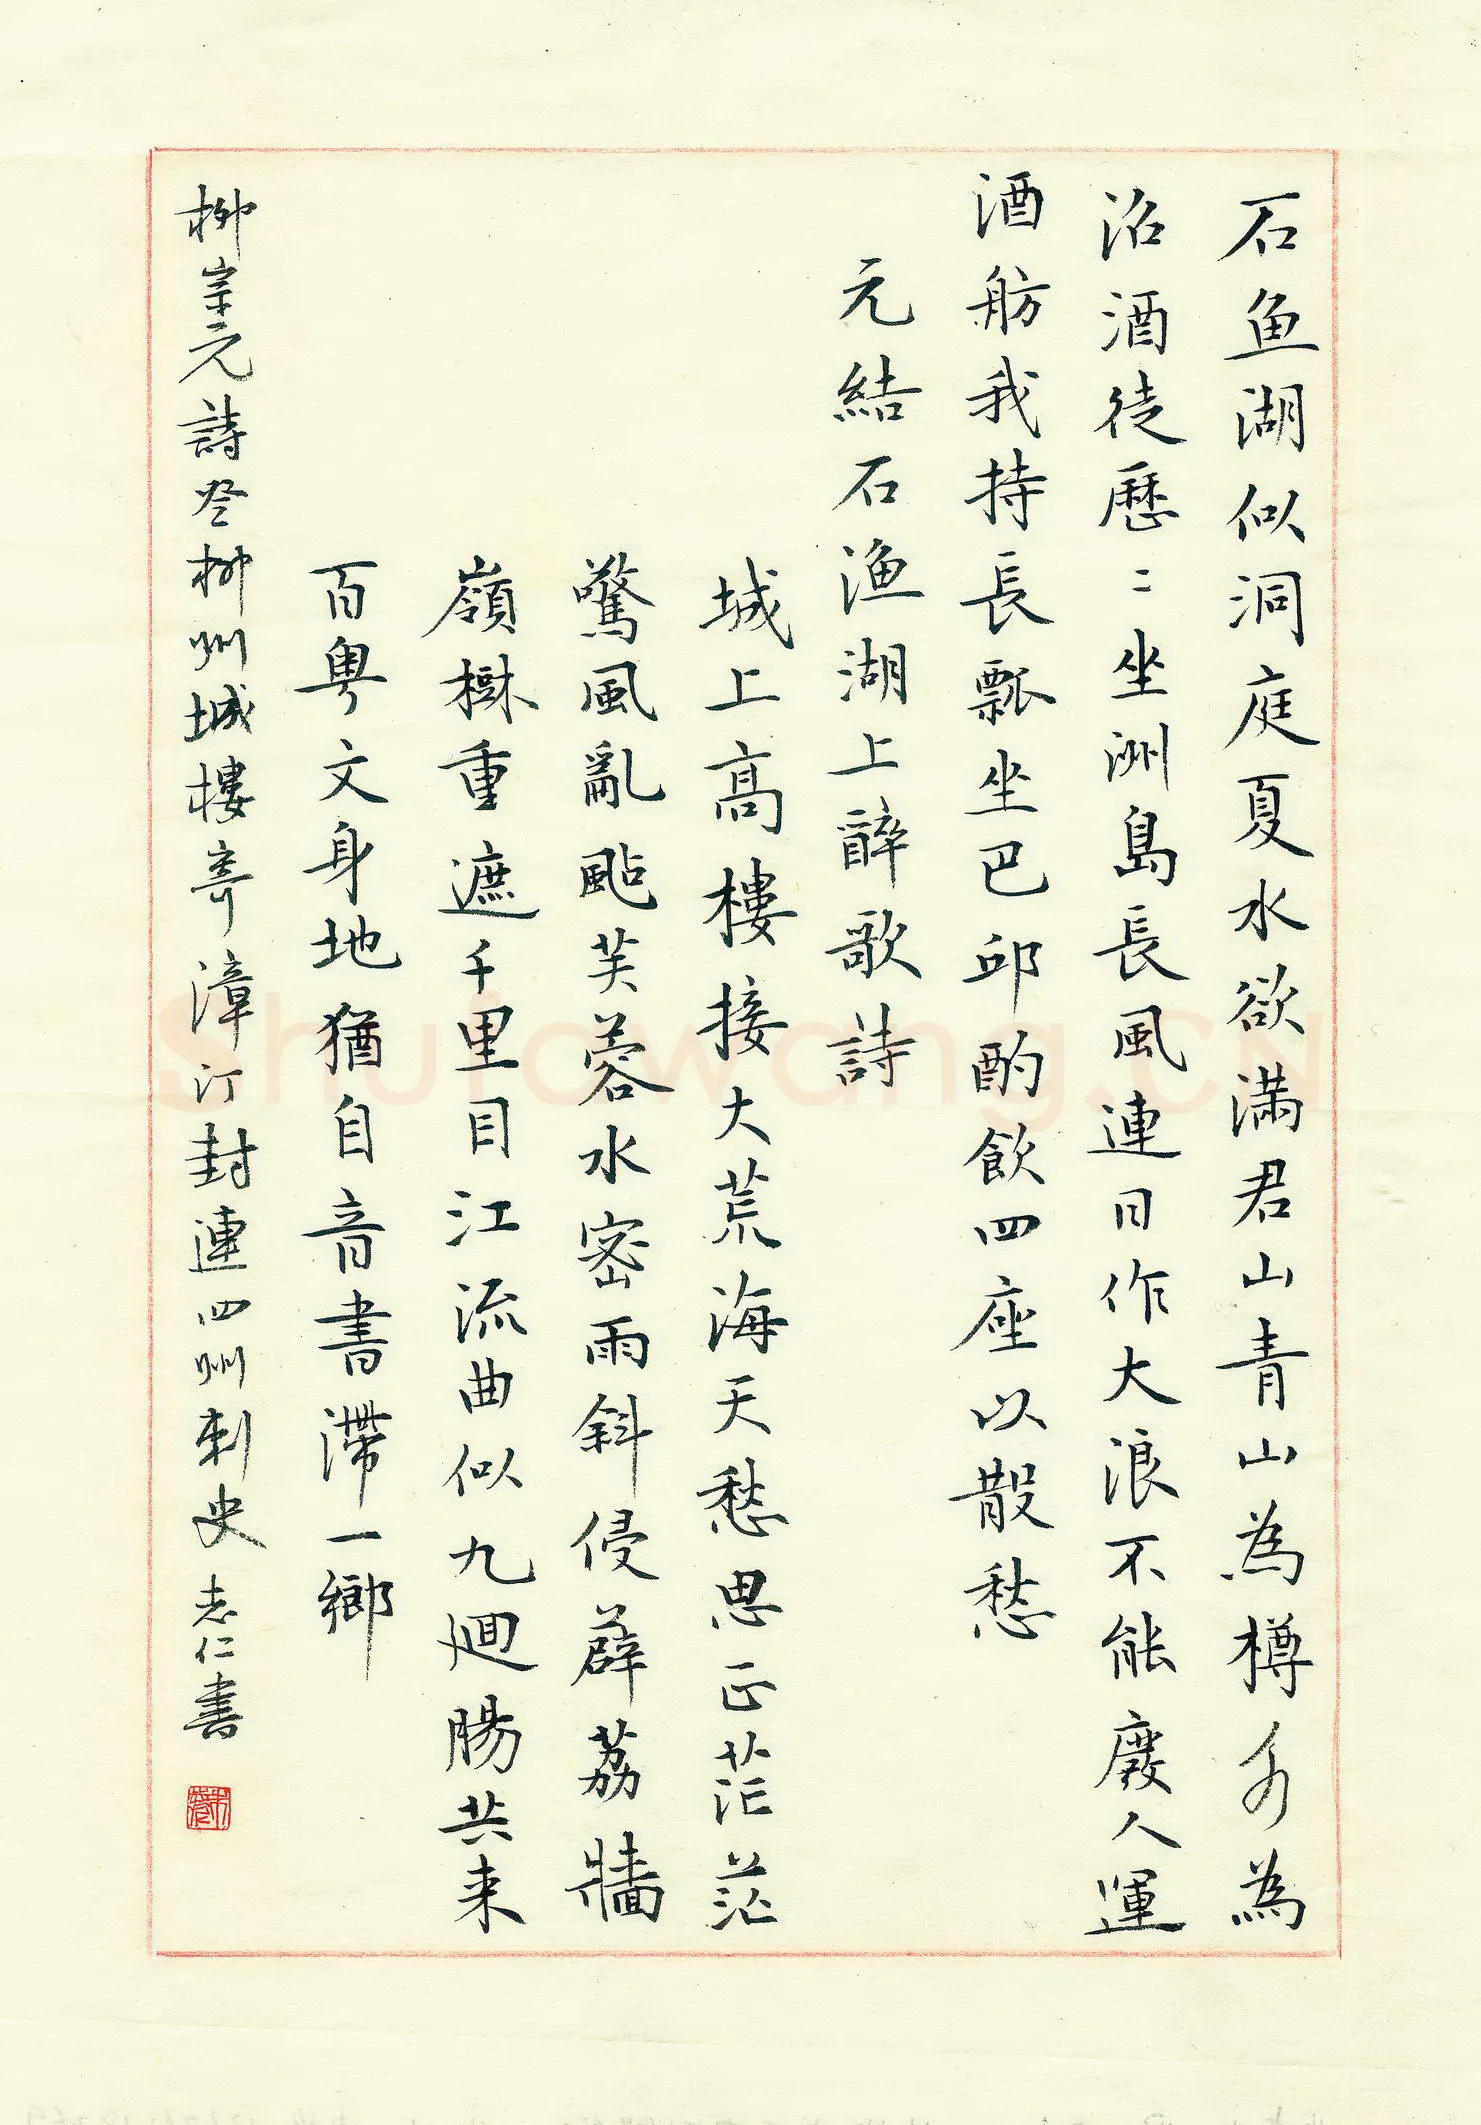 石鱼湖似洞庭夏水欲满君山青山為樽水為
沼酒徒歷〻坐洲島長風連日作大浪不能廢人運
酒舫我持長瓢坐巴邱酌飲四座以散愁
元結石渔湖上醉歌詩
城上高樓接大荒海天愁思正茫茫
驚風亂颭芙蓉水密雨斜侵薜荔牆
嶺樹重遮千里目江流曲似九迴腸共来
百粤文身地猶自音書滯一鄉
柳宗元詩登柳州城樓寄漳汀封連四州刺史 志仁書
Shufawang.CN